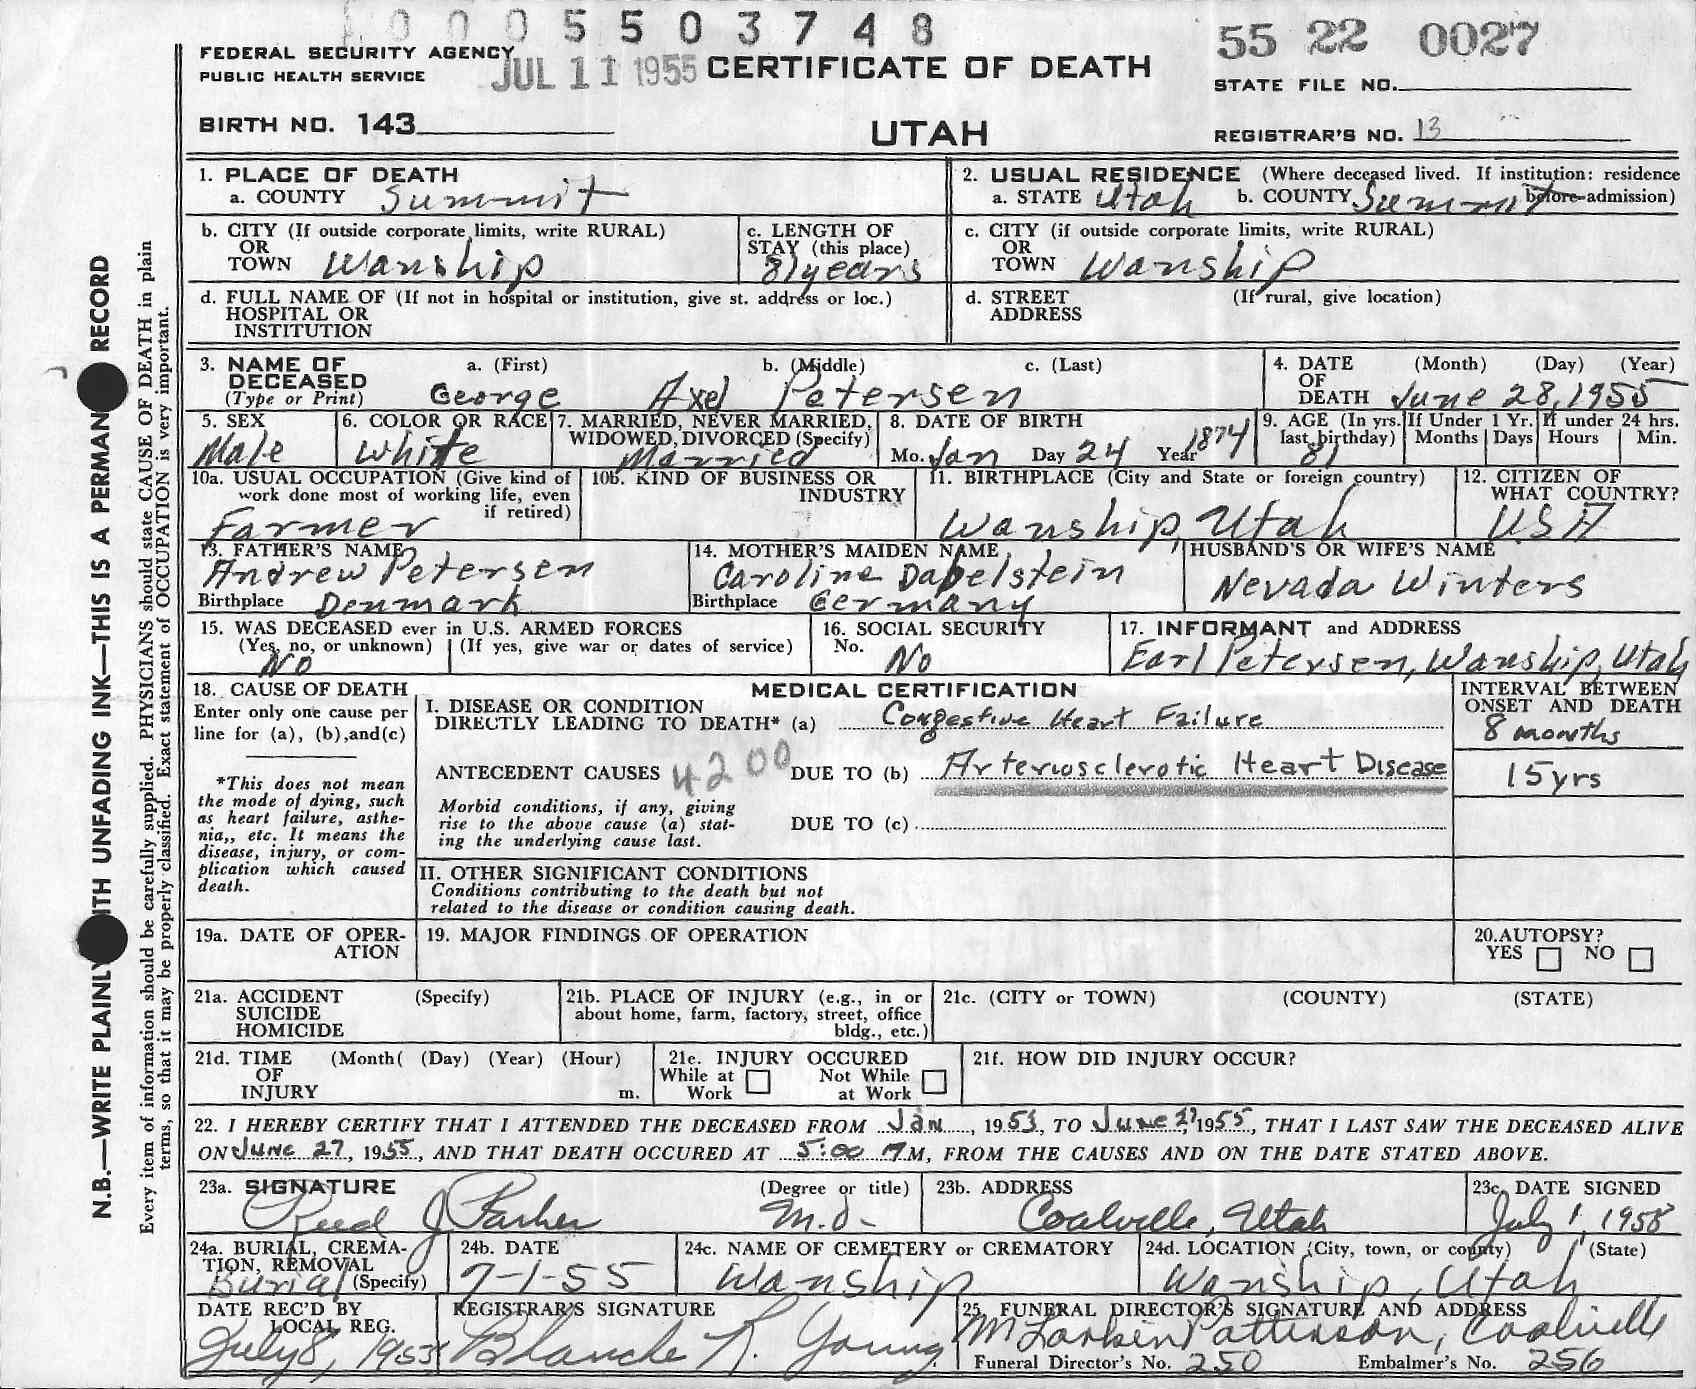 0005503748
55 22 0027
FEDERAL SECURITY AGENCY
PUBLIC HEALTH SERVICE
JUL 11 1955
CERTIFICATE OF DEATH
STATE FILE NO.
BIRTH NO. 143
UTAH
REGISTRAR'S NO. 13
1. PLACE OF DEATH
a. COUNTY Summit
2. USUAL RESIDENCE (Where deceased lived. If institution: residence before admission)
a. STATE Utah b. COUNTY Summit
b. CITY (If outside corporate limits, write RURAL)
OR
TOWN Wanship
c. LENGTH OF
STAY (this place)
81 years
c. CITY (if outside corporate limits, write RURAL)
OR
TOWN Wanship
d. FULL NAME OF (If not in hospital or institution, give st. address or loc.)
HOSPITAL OR
INSTITUTION
d. STREET (If rural, give location)
ADDRESS
3. NAME OF a. (First) b. (Middle) c. (Last)
DECEASED
(Type or Print) George Axel Petersen
4. DATE (Month) (Day) (Year)
OF
DEATH June 28, 1955
5. SEX
Male
6. COLOR OR RACE
White
7. MARRIED, NEVER MARRIED,
WIDOWED, DIVORCED (Specify)
Married
8. DATE OF BIRTH
Mo. Jan Day 24 Year 1874
9. AGE (In yrs. last birthday)
81
If Under 1 Yr.
Months Days
If under 24 hrs.
Hours Min.
10a. USUAL OCCUPATION (Give kind of
work done most of working life, even
if retired)
Farmer
10b. KIND OF BUSINESS OR
INDUSTRY
11. BIRTHPLACE (City and State or foreign country)
Wanship, Utah
12. CITIZEN OF
WHAT COUNTRY?
USA
13. FATHER'S NAME
Andrew Petersen
Birthplace Denmark
14. MOTHER'S MAIDEN NAME
Caroline Dabelstein
Birthplace Germany
HUSBAND'S OR WIFE'S NAME
Nevada Winters
15. WAS DECEASED ever in U.S. ARMED FORCES
(Yes, no, or unknown) (If yes, give war or dates of service)
No
16. SOCIAL SECURITY
No. No
17. INFORMANT and ADDRESS
Earl Petersen, Wanship, Utah
18. CAUSE OF DEATH
Enter only one cause per
line for (a), (b), and (c)
*This does not mean
the mode of dying, such
as heart failure, asthe-
nia,, etc. It means the
disease, injury, or com-
plication which caused
death.
MEDICAL CERTIFICATION
I. DISEASE OR CONDITION
DIRECTLY LEADING TO DEATH* (a) Congestive Heart Failure
ANTECEDENT CAUSES 4200 DUE TO (b) Arteriosclerotic Heart Disease
Morbid conditions, if any, giving
rise to the above cause (a) stat-
ing the underlying cause last.
DUE TO (c)
INTERVAL BETWEEN
ONSET AND DEATH
8 months
15 yrs
II. OTHER SIGNIFICANT CONDITIONS
Conditions contributing to the death but not
related to the disease or condition causing death.
19a. DATE OF OPER-
ATION
19. MAJOR FINDINGS OF OPERATION
20. AUTOPSY?
YES NO
21a. ACCIDENT (Specify)
SUICIDE
HOMICIDE
21b. PLACE OF INJURY (e.g., in or
about home, farm, factory, street, office
bldg., etc.)
21c. (CITY or TOWN) (COUNTY) (STATE)
21d. TIME (Month( (Day) (Year) (Hour)
OF
INJURY m.
21e. INJURY OCCURED
While at Work Not While at Work
21f. HOW DID INJURY OCCUR?
22. I HEREBY CERTIFY THAT I ATTENDED THE DECEASED FROM Jan, 1953, TO June 27, 1955, THAT I LAST SAW THE DECEASED ALIVE
ON June 27, 1955, AND THAT DEATH OCCURED AT 5:00 M, FROM THE CAUSES AND ON THE DATE STATED ABOVE.
23a. SIGNATURE (Degree or title)
Reed J Parker M.D.
23b. ADDRESS
Coalville, Utah
23c. DATE SIGNED
July 1, 1955
24a. BURIAL, CREMA-
TION, REMOVAL
(Specify)
Burial
24b. DATE
7-1-55
24c. NAME OF CEMETERY or CREMATORY
Wanship
24d. LOCATION (City, town, or county) (State)
Wanship, Utah
DATE REC'D BY
LOCAL REG.
July 8, 1955
REGISTRAR'S SIGNATURE
Blanche R. Young
25. FUNERAL DIRECTOR'S SIGNATURE AND ADDRESS
M Larkin Patterson, Coalville
Funeral Director's No. 250 Embalmer's No. 256
N.B.—WRITE PLAINLY WITH UNFADING INK—THIS IS A PERMANENT RECORD
Every item of information should be carefully supplied. PHYSICIANS should state CAUSE OF DEATH in plain
terms, so that it may be properly classified. Exact statement of OCCUPATION is very important.